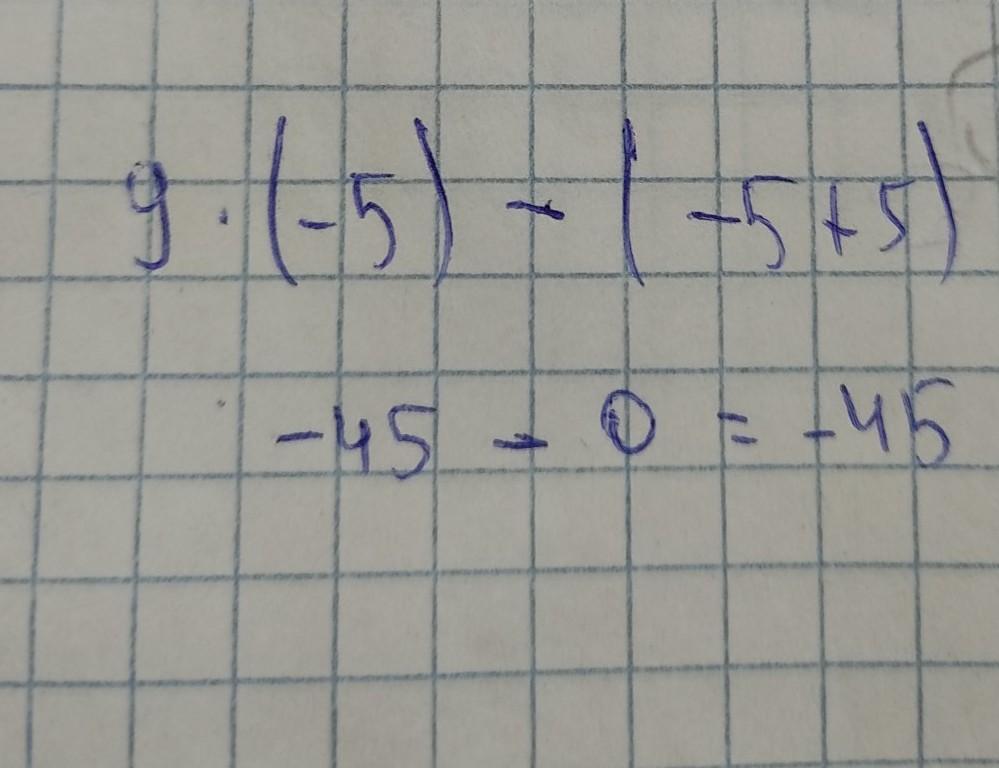 9 · (-5) - (-5+5)
-45 - 0 = -45